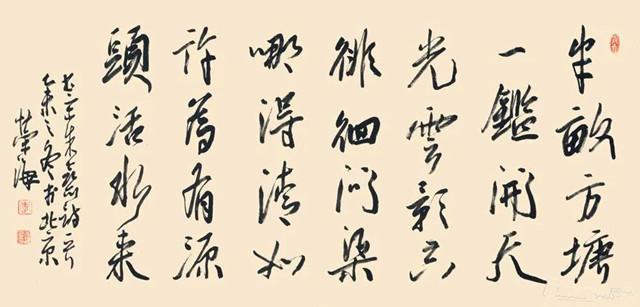 半畝方塘
一鑑開天
光雲影共
徘徊問渠
哪得清如
許為有源
頭活水來
书宋朱熹詩一首
乙未之冬于北京